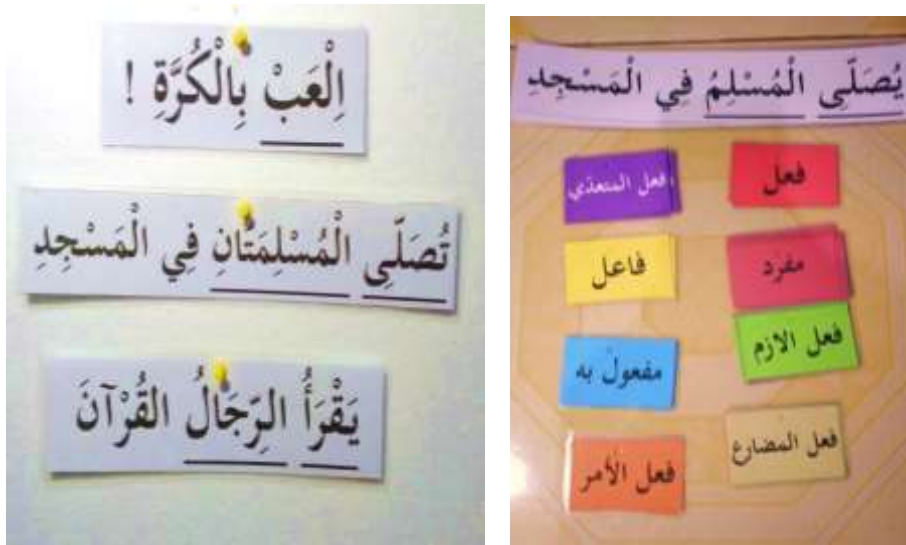 اِلْعَبْ بِالْكُرَّةِ !
تُصَلِّى الْمُسْلِمَتَانِ فِي الْمَسْجِدِ
يَقْرَأُ الرِّجَالُ القُرْآنَ
يُصَلِّى الْمُسْلِمُ فِي الْمَسْجِدِ
فعل
فعل المتعدّي
مفرد
فاعل
فعل الازم
مفعول به
فعل المضارع
فعل الأمر